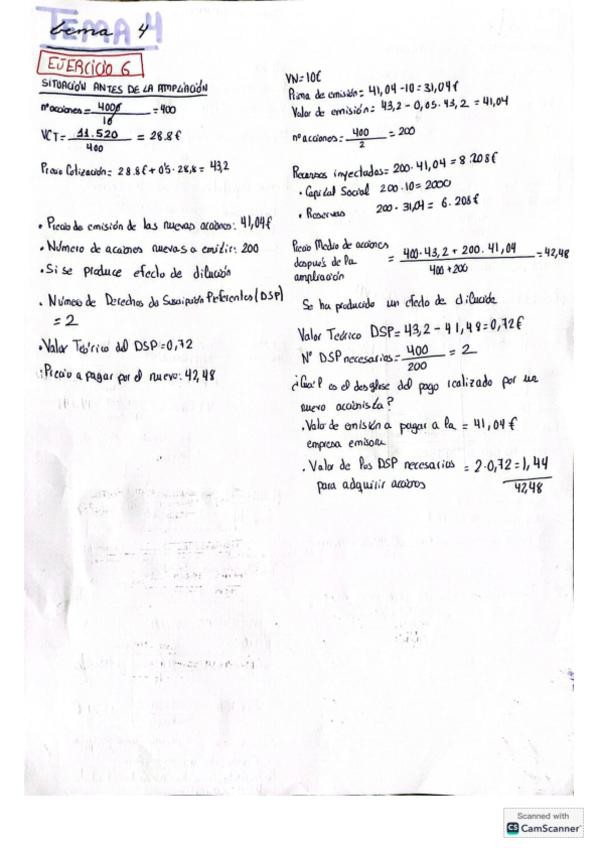 TEMA 4
tema 4
EJERCICIO 6
SITUACIÓN ANTES DE LA AMPLIACIÓN
nº acciones = 4000 / 10 = 400
VCT = 11.520 / 400 = 28.8€
Precio Cotización = 28.8€ + 0'5 · 28,8 = 43,2
• Precio de emisión de las nuevas acciones: 41,04€
• Número de acciones nuevas a emitir: 200
• Si se produce efecto de dilución
• Número de Derechos de Suscripción Preferentes (DSP)
= 2
• Valor Teórico del DSP = 0,72
• Precio a pagar por el nuevo: 42,48
VN = 10€
Prima de emisión = 41,04 - 10 = 31,04€
Valor de emisión = 43,2 - 0,05 · 43,2 = 41,04
nº acciones = 400 / 2 = 200
Recursos inyectados = 200 · 41,04 = 8.208€
• Capital Social 200 · 10 = 2000
• Reservas 200 · 31,04 = 6.208€
Precio Medio de acciones
después de la = 400 · 43,2 + 200 · 41,04 / 400 + 200 = 42,48
ampliación
Se ha producido un efecto de dilución
Valor Teórico DSP = 43,2 - 41,48 = 0,72€
Nº DSP necesarios = 400 / 200 = 2
¿Cuál es el desglose del pago realizado por un
nuevo accionista?
• Valor de emisión a pagar a la = 41,04€
empresa emisora
• Valor de los DSP necesarios = 2 · 0,72 = 1,44
para adquirir acciones
42,48
Scanned with
CS CamScanner